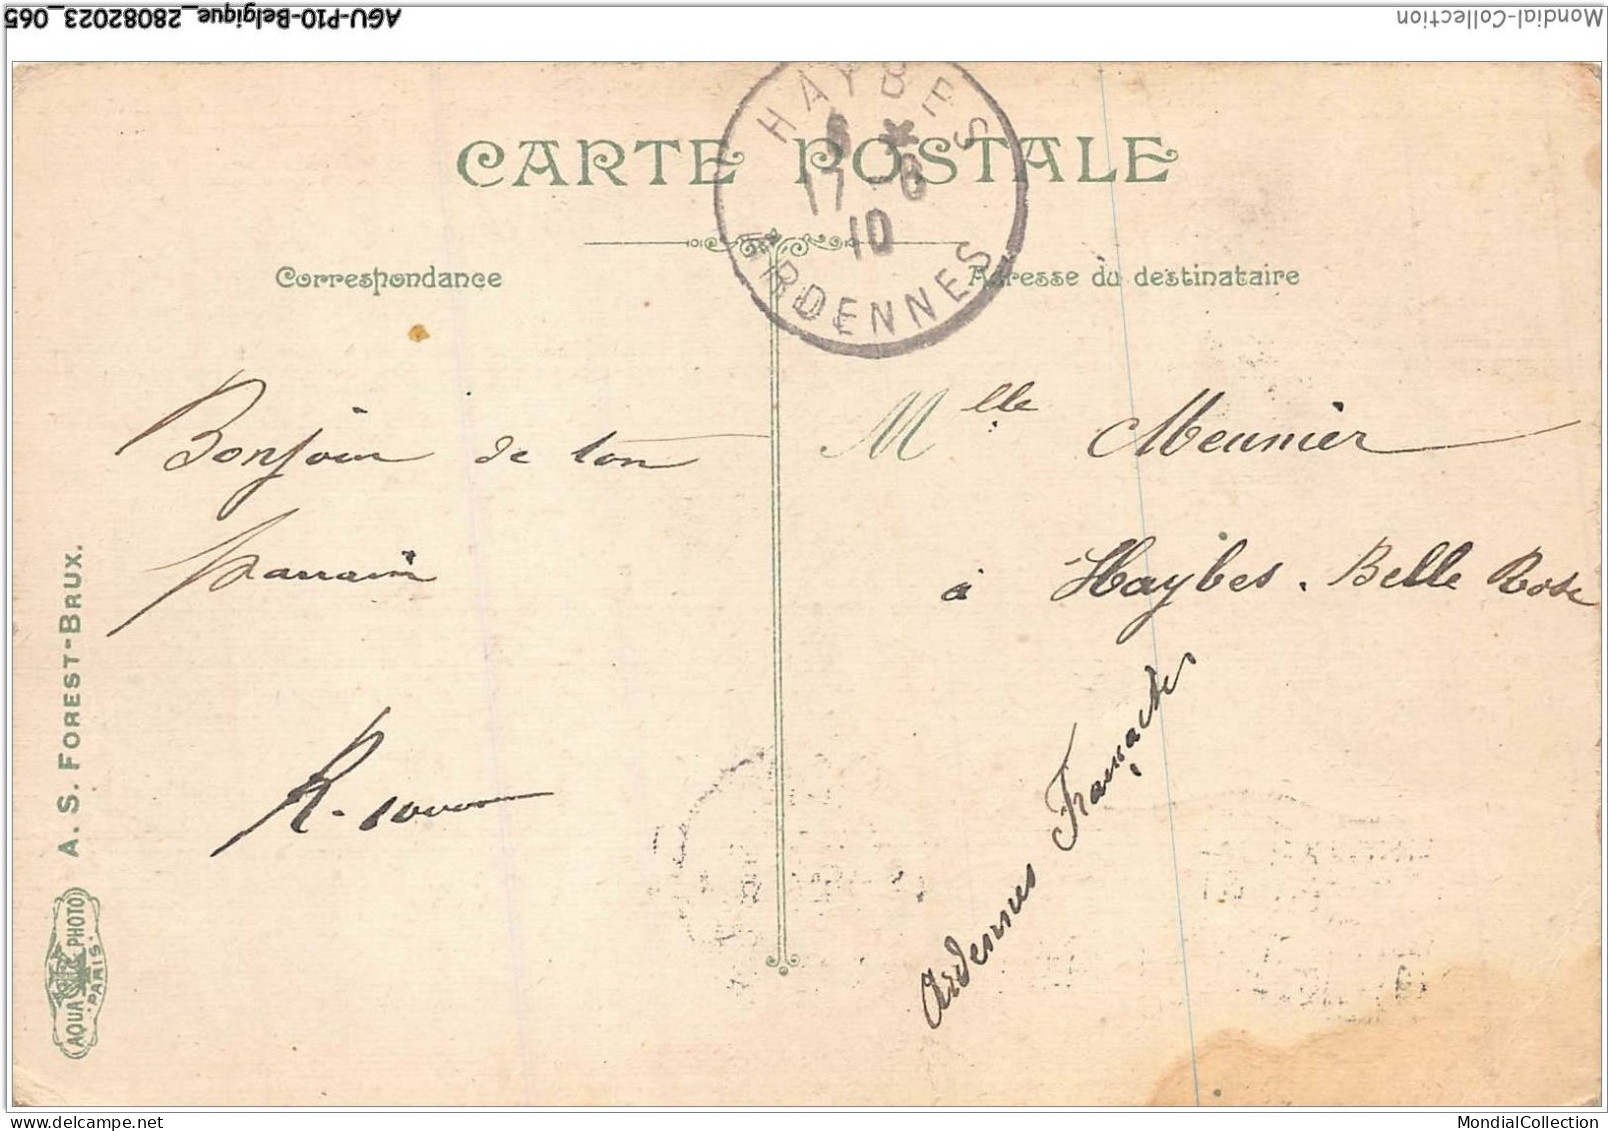 AGU-P10-Belgique_28082023_065
Mondial-Collection
CARTE POSTALE
HAYBES
6 *
17 - 8
10
ARDENNES
Correspondance
Adresse du destinataire
Bonjour de ton
parrain
Mlle Meunier
à Haybes. Belle Rose
Ardennes Françaises
A. S. FOREST-BRUX.
AQUA PHOTO
PARIS
MondialCollection